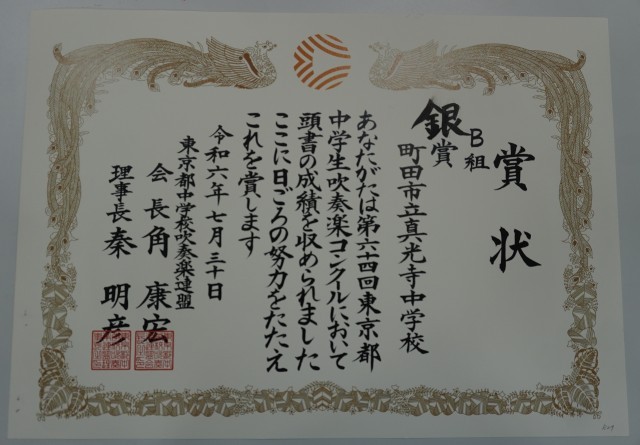 賞状
B組
銀賞
町田市立真光寺中学校
あなたがたは第六十四回東京都
中学生吹奏楽コンクールにおいて
頭書の成績を収められました
ここに日ごろの努力をたたえ
これを賞します
令和六年七月三十日
東京都中学校吹奏楽連盟
会長角康宏
理事長秦明彦